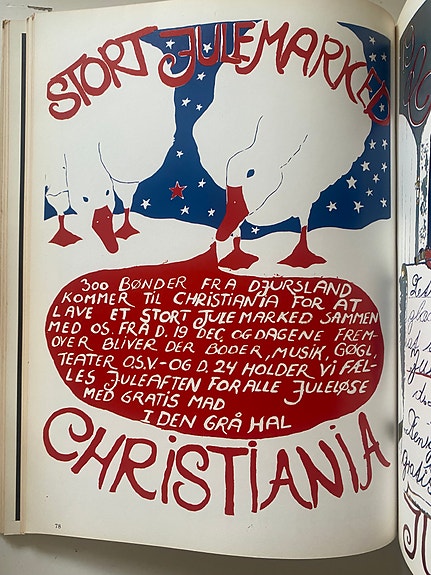 STORT JULEMARKED
300 BØNDER FRA DJURSLAND
KOMMER TIL CHRISTIANIA FOR AT
LAVE ET STORT JULEMARKED SAMMEN
MED OS. FRA D. 19 DEC, OG DAGENE FREM-
OVER BLIVER DER BODER, MUSIK, GØGL,
TEATER O.S.V.-OG D. 24 HOLDER VI FÆL-
LES JULEAFTEN FOR ALLE JULELØSE
MED GRATIS MAD
I DEN GRÅ HAL
CHRISTIANIA
78